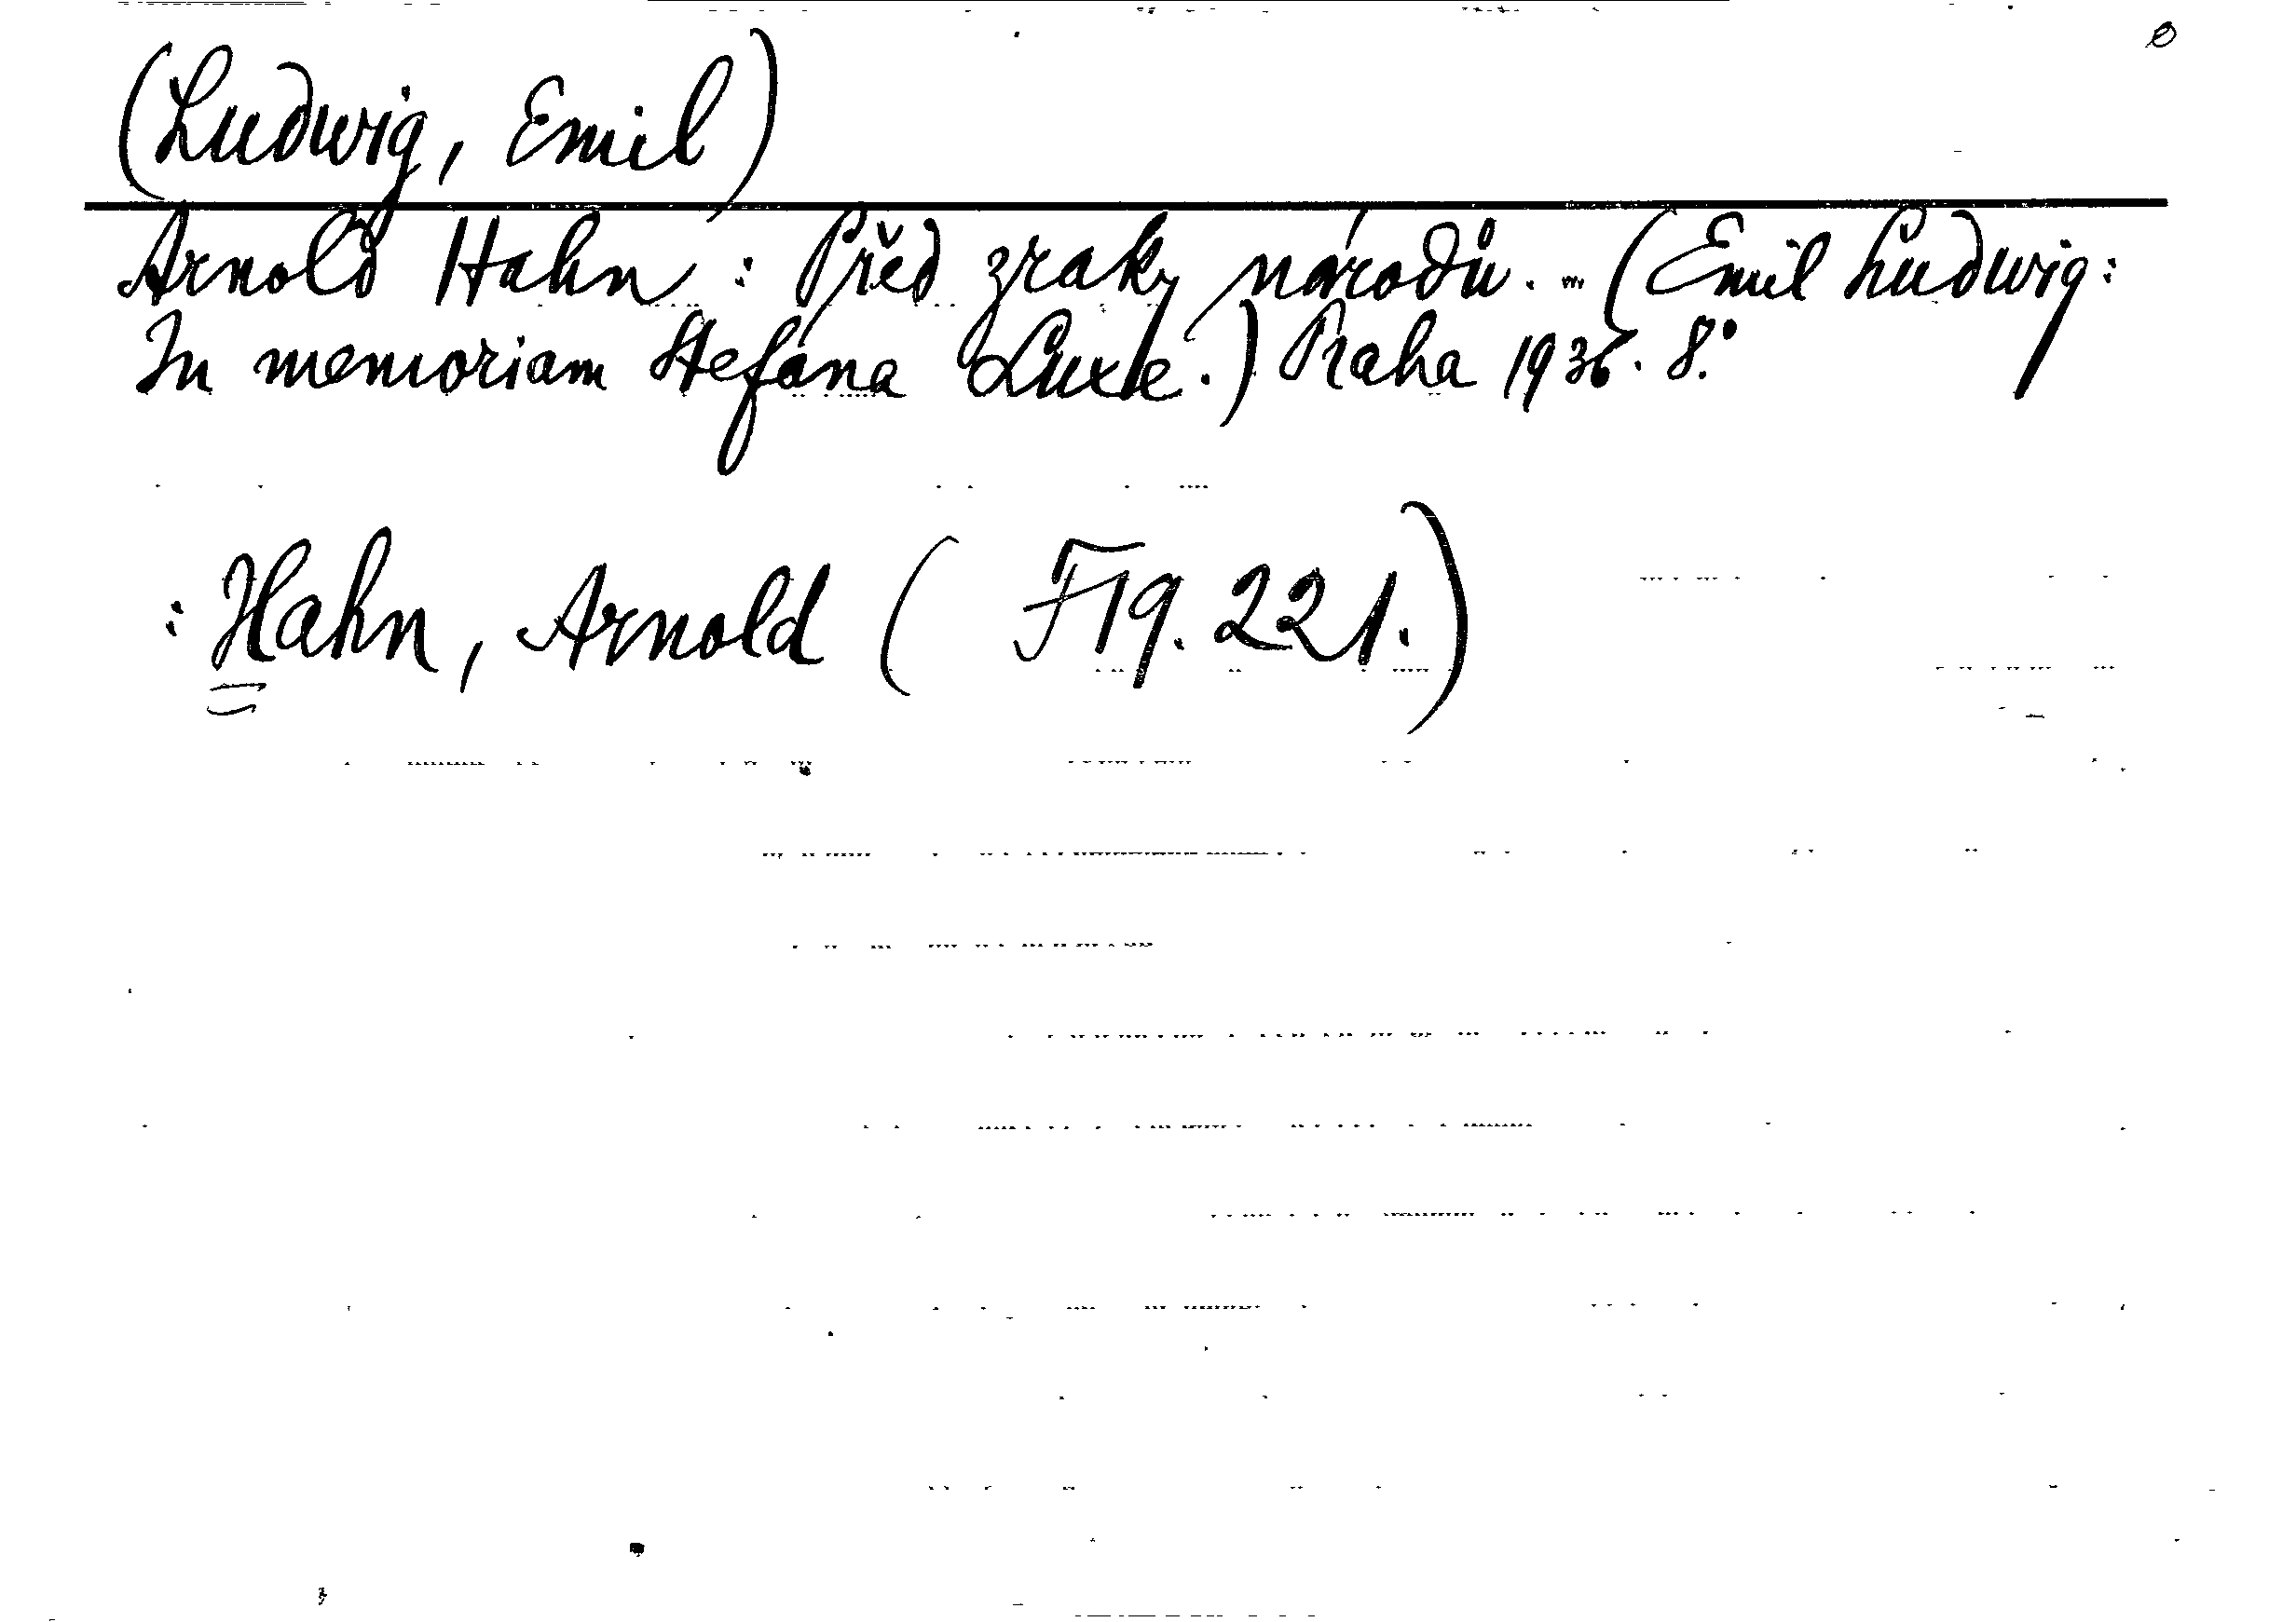 (Ludwig, Emil)
Arnold Hahn : Před zraky národů. - (Emil Ludwig:
In memoriam Stefana Luxe.) Praha 1936. 8.°
: Hahn, Arnold ( F 19. 221.)